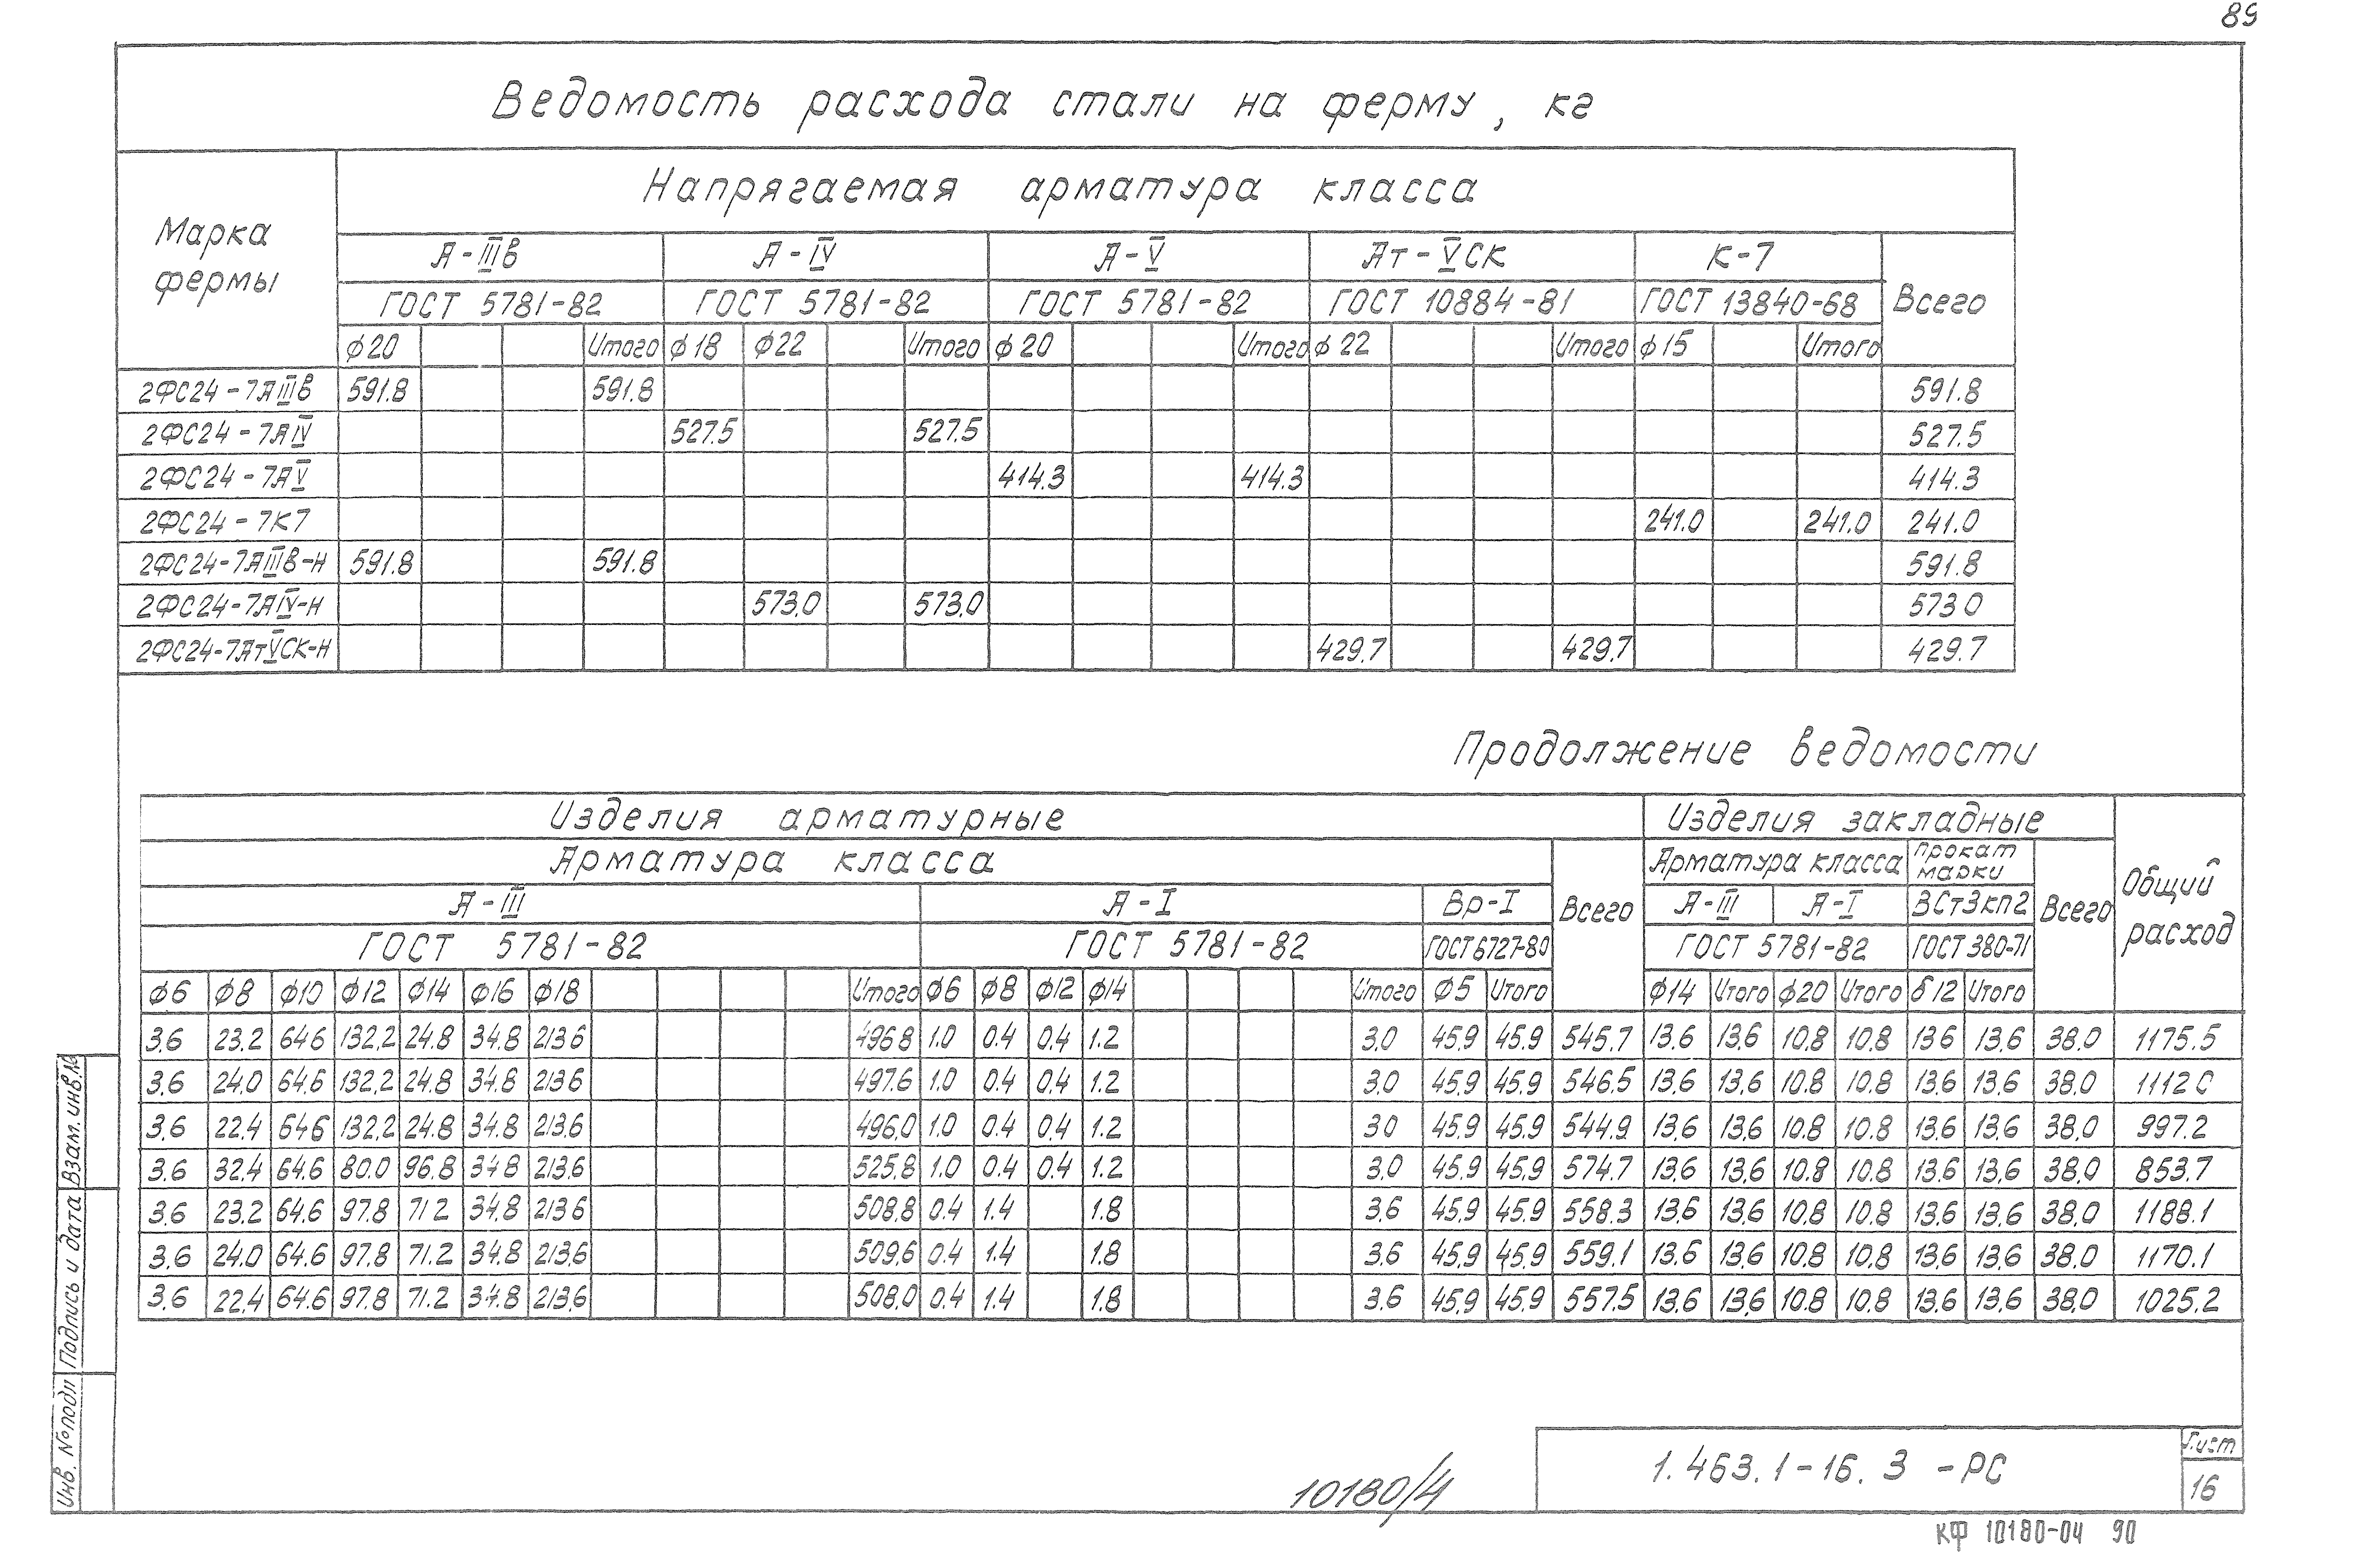 89
Ведомость расхода стали на ферму, кг
Марка фермы
Напрягаемая арматура класса
А-IIIв А-IV А-V Ат-VСК К-7 Всего
ГОСТ 5781-82 ГОСТ 5781-82 ГОСТ 5781-82 ГОСТ 10884-81 ГОСТ 13840-68
ф20 Итого ф18 ф22 Итого ф20 Итого ф22 Итого ф15 Итого
2ФС24-7АIIIв 591.8 591.8 591.8
2ФС24-7АIV 527.5 527.5 527.5
2ФС24-7АV 414.3 414.3 414.3
2ФС24-7К7 241.0 241.0 241.0
2ФС24-7АIIIв-Н 591.8 591.8 591.8
2ФС24-7АIV-Н 573.0 573.0 573 0
2ФС24-7АтVСК-Н 429.7 429.7 429.7
Продолжение ведомости
Изделия арматурные Изделия закладные Общий расход
Арматура класса Всего Арматура класса Прокат марки Всего
А-III А-I Вр-I А-III А-I ВСт3кп2
ГОСТ 5781-82 ГОСТ 5781-82 ГОСТ 6727-80 ГОСТ 5781-82 ГОСТ 380-71
ф6 ф8 ф10 ф12 ф14 ф16 ф18 Итого ф6 ф8 ф12 ф14 Итого ф5 Итого ф14 Итого ф20 Итого б12 Итого
3.6 23.2 64.6 132.2 24.8 34.8 213.6 496.8 1.0 0.4 0.4 1.2 3.0 45.9 45.9 545.7 13.6 13.6 10.8 10.8 13.6 13.6 38.0 1175.5
3.6 24.0 64.6 132.2 24.8 34.8 213.6 497.6 1.0 0.4 0.4 1.2 3.0 45.9 45.9 546.5 13.6 13.6 10.8 10.8 13.6 13.6 38.0 1112.0
3.6 22.4 64.6 132.2 24.8 34.8 213.6 496.0 1.0 0.4 0.4 1.2 3.0 45.9 45.9 544.9 13.6 13.6 10.8 10.8 13.6 13.6 38.0 997.2
3.6 32.4 64.6 80.0 96.8 34.8 213.6 525.8 1.0 0.4 0.4 1.2 3.0 45.9 45.9 574.7 13.6 13.6 10.8 10.8 13.6 13.6 38.0 853.7
3.6 23.2 64.6 97.8 71.2 34.8 213.6 508.8 0.4 1.4 1.8 3.6 45.9 45.9 558.3 13.6 13.6 10.8 10.8 13.6 13.6 38.0 1188.1
3.6 24.0 64.6 97.8 71.2 34.8 213.6 509.6 0.4 1.4 1.8 3.6 45.9 45.9 559.1 13.6 13.6 10.8 10.8 13.6 13.6 38.0 1170.1
3.6 22.4 64.6 97.8 71.2 34.8 213.6 508.0 0.4 1.4 1.8 3.6 45.9 45.9 557.5 13.6 13.6 10.8 10.8 13.6 13.6 38.0 1025.2
Инв. № подл Подпись и дата Взам. инв. №
10180/4
1.463.1-16.3 -РС
Лист
16
КФ 10180-04 90